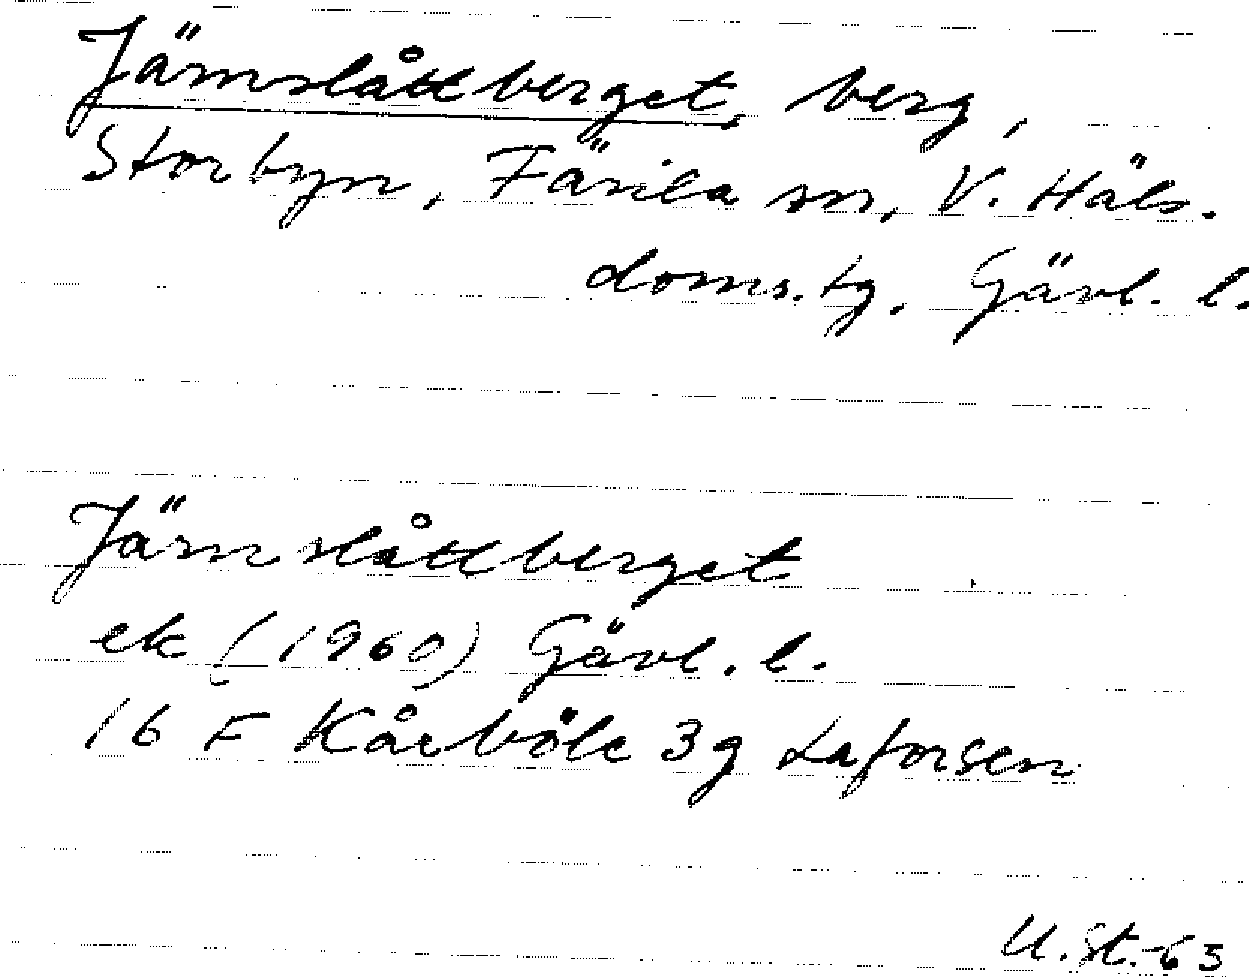 Järnslåttberget, berg,
Storbyn, Färila sn, V. Häls.
doms. tg, Gävl. l.
Järnslåttberget
ek (1960) Gävl. l.
16 F Kårböle 3g Laforsen
U. St. -63